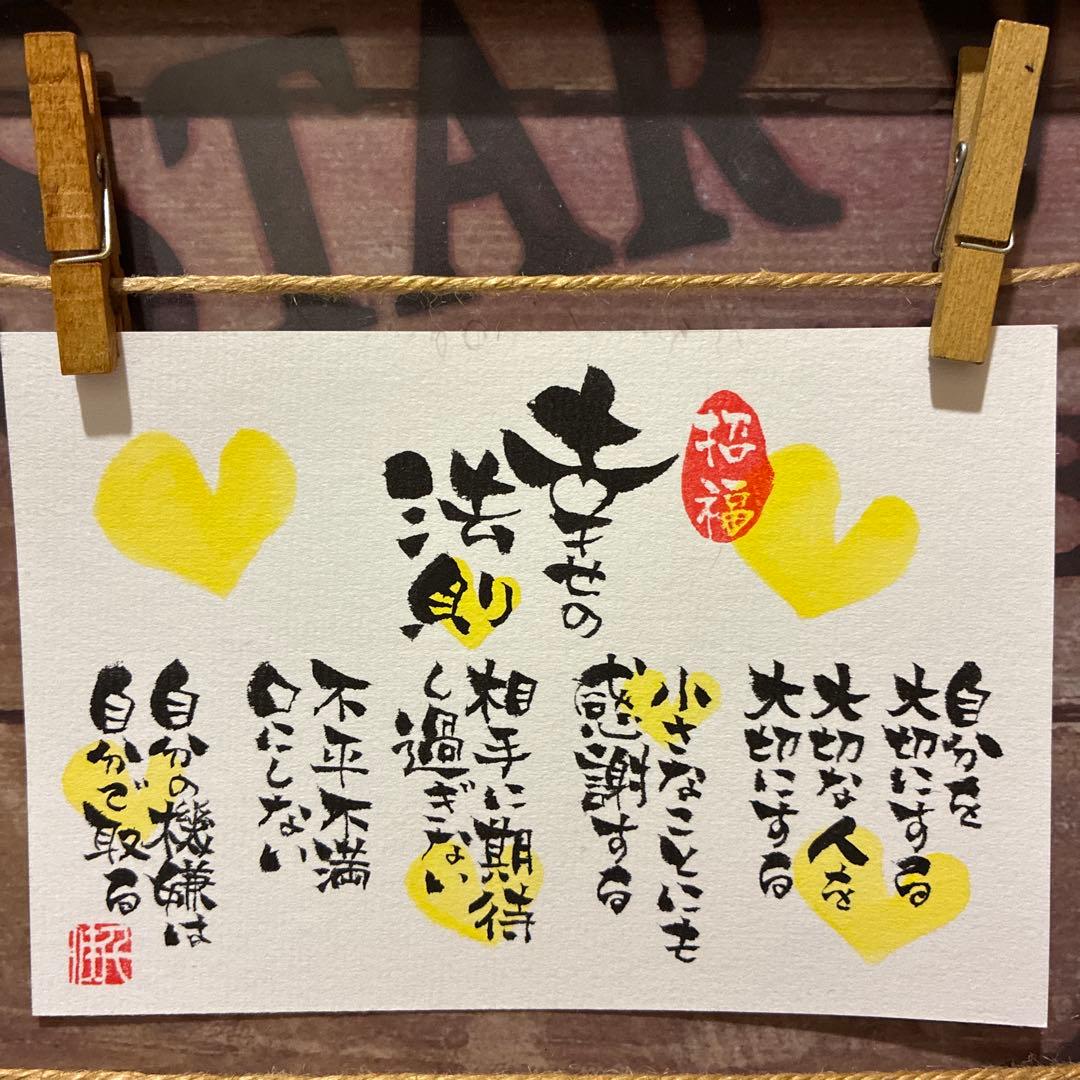 STAR
招福
幸せの
法則
自分を
大切にする
大切な人を
大切にする
小さなことにも
感謝する
相手に期待
し過ぎない
不平不満
口にしない
自分の機嫌は
自分で取る